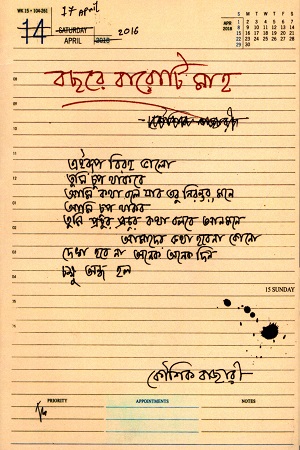 17 April
WK 15 • 104-261
14 SATURDAY
APRIL 2018 2016
APR 2018
S M T W T F S
1 2 3 4 5 6 7
8 9 10 11 12 13 14
15 16 17 18 19 20 21
22 23 24 25 26 27 28
29 30
বছরে বারোটি মাহ
এইরূপ বিরহ ভালো
তুমি চুপ থাকবে
আমি কথা বলে যাব তবু নিরন্তর, মনে
আমি চুপ থাকব
তুমি প্রচুর প্রচুর কথা বলবে আনমনে
আমাদের কথা হবে না কোনো
দেখা হবে না অনেক অনেক দিন
চক্ষু অন্ধ হল
15 SUNDAY
কৌশিক বাজারী
PRIORITY
APPOINTMENTS
NOTES